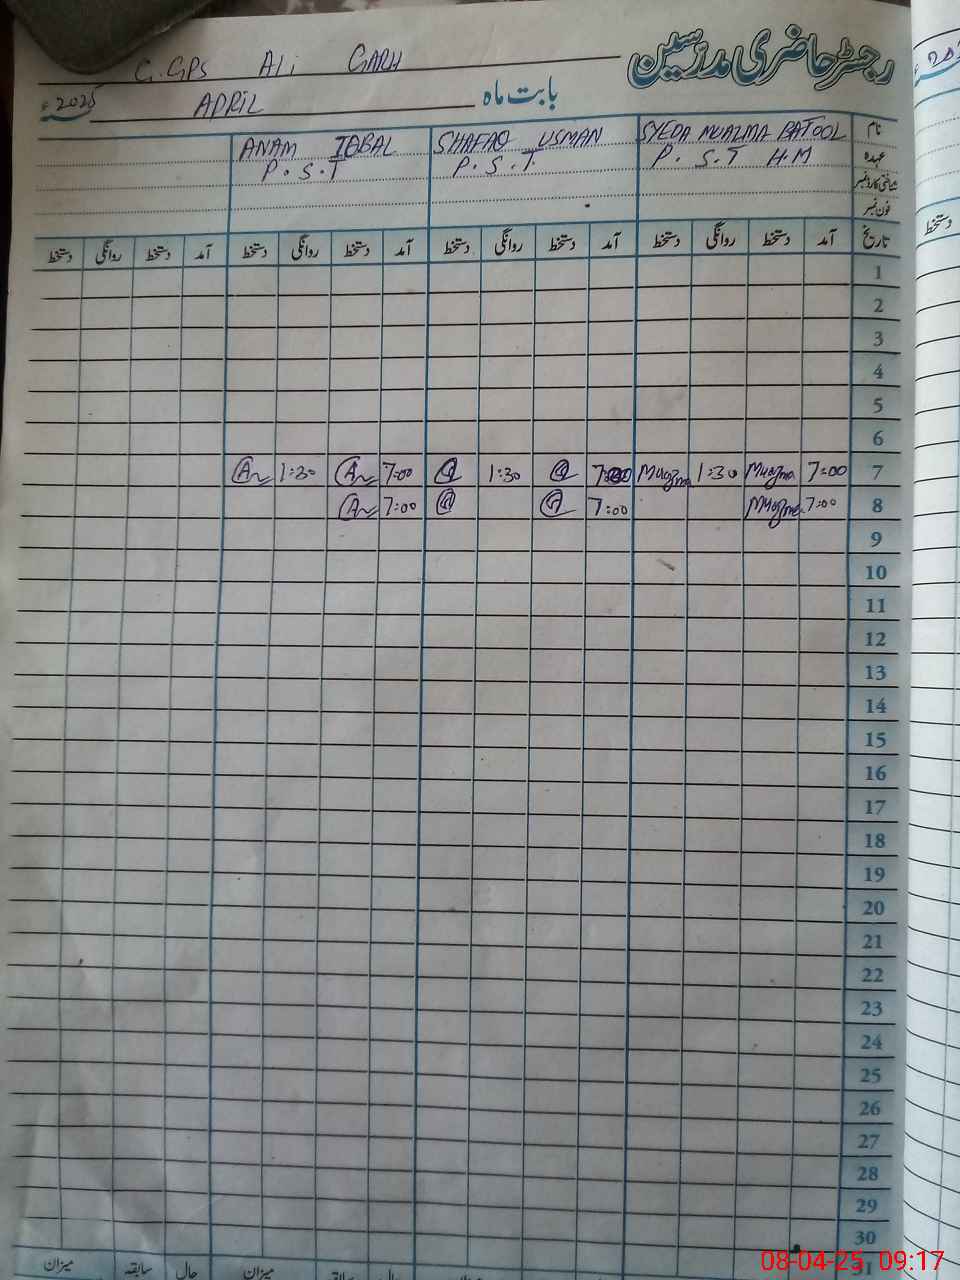 رجسٹر حاضری مدرسین
G.GPS ALi GARH
بابت ماہ APRIL 2025ء
نام SYEDA MUAZMA BATOOL SHAFAQ USMAN ANAM IQBAL
عہدہ P.S.T H.M P.S.T P.S.T
شناختی کارڈ نمبر
فون نمبر
تاریخ آمد دستخط روانگی دستخط آمد دستخط روانگی دستخط آمد دستخط روانگی دستخط آمد دستخط روانگی دستخط
1
2
3
4
5
6
7 7:00 Muazma 1:30 Muazma 7:00 1:30 7:00 1:30
8 7:00 Muazma 7:00 7:00
9
10
11
12
13
14
15
16
17
18
19
20
21
22
23
24
25
26
27
28
29
30
31
میزان حال سابقہ میزان
دستخط
08-04-25, 09:17